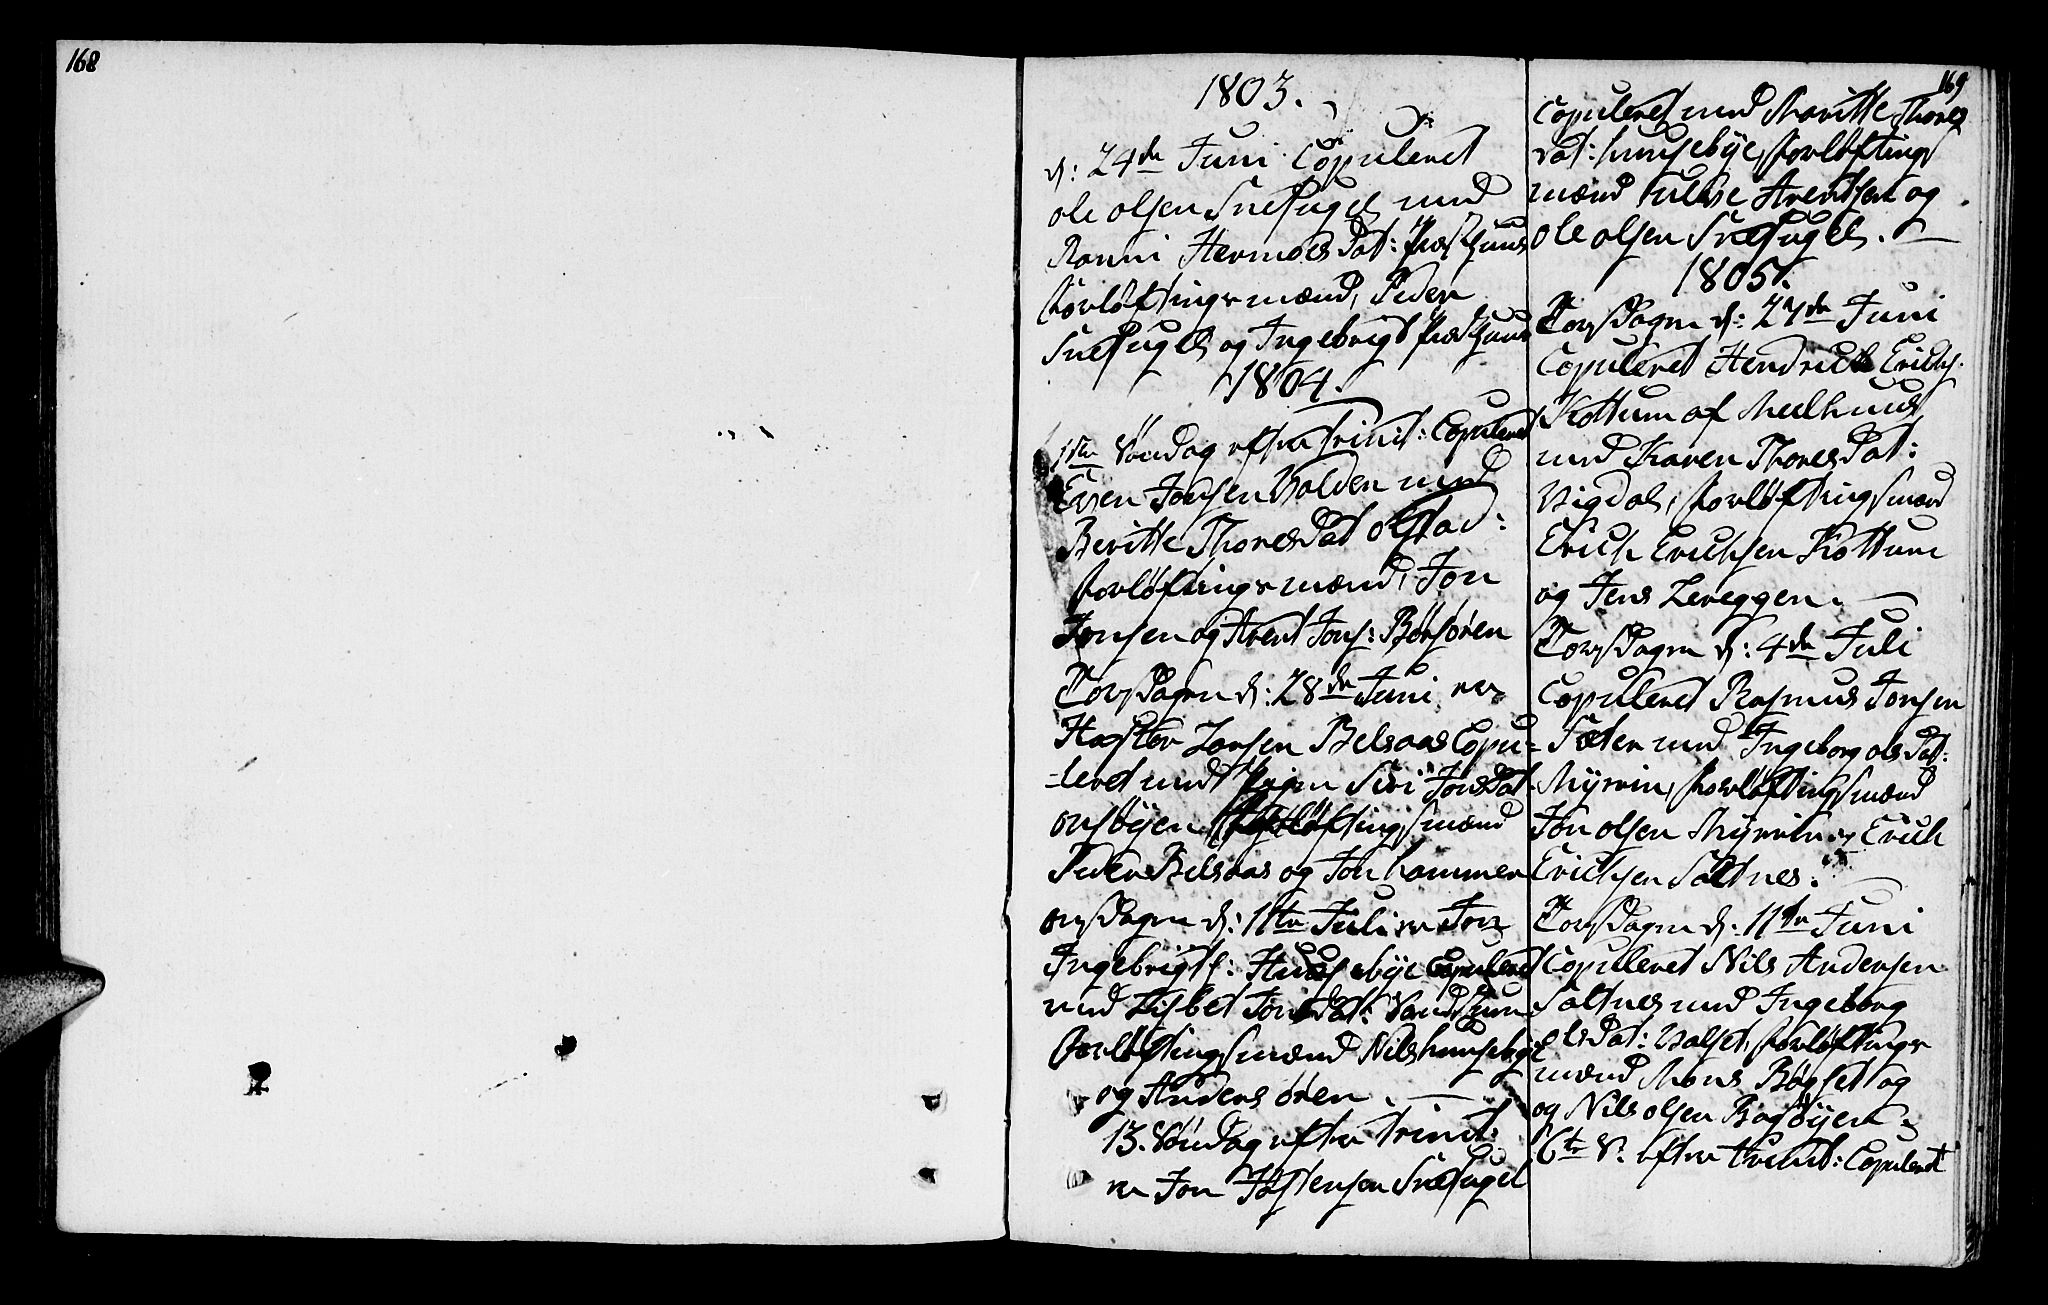 168
1803.
d: 24de Juni Copuleret
ole olsen Snefugel med
Ranni Hermoes Dat:
forløftingsmænd, Peder
Snefugel og Ingebrigt
1804.
1ste Søndag efter Trinit: Copuleret
Even Jonsen Volden med
Beritte Thores Dat olstad:
forløftingsmænd, Jon
Jonsen og Arent Jons: Børsøren
Torsdagen d: 28de Juni er
Hagster Larsen Belsaas Copu-
-leret med Pigen Siri Jons Dat
onsøyen forløftings mænd
Peder Belsaas og Jon hammer
onsdagen d: 11te Juli er Jon
Ingebrigts: Hunsebye Copuleret
med Lisbet Jons Dat:
forløftings mænd Nils hunsebye
og Anders ören. —
13. Søndag efter Trinit:
er Jon Høstensen Snefugel
169
Copuleret med Maritte Thores
Dat: hunsebye, forløftings
mænd Arentsen og
ole olsen Snefugel. —
1805.
Torsdagen d: 27de Juni
Copuleret Hendrich Erichs:
Kottum af Meelhuus
med Karen Thores Dat:
Vigdal, forløftings mænd
Erich Erichsen Kottum
og Jens Lereggen. —
Torsdagen d: 4de Juli
Copuleret Rasmus Jonsen
Sæter med Ingeborg ols Dat:
Myrein, forløftings mænd
Jon olsen Myrein og Erich
Erichsen Saltnes. —
Torsdagen d: 11te Juni
Copuleret Nils Andersen
Saltnes med Ingeborg
ols Dat: Valset, forløftings
mænd Mons Bøgset og
og Nils olsen Bagøyen.
6te S: efter trinit: Copuleret